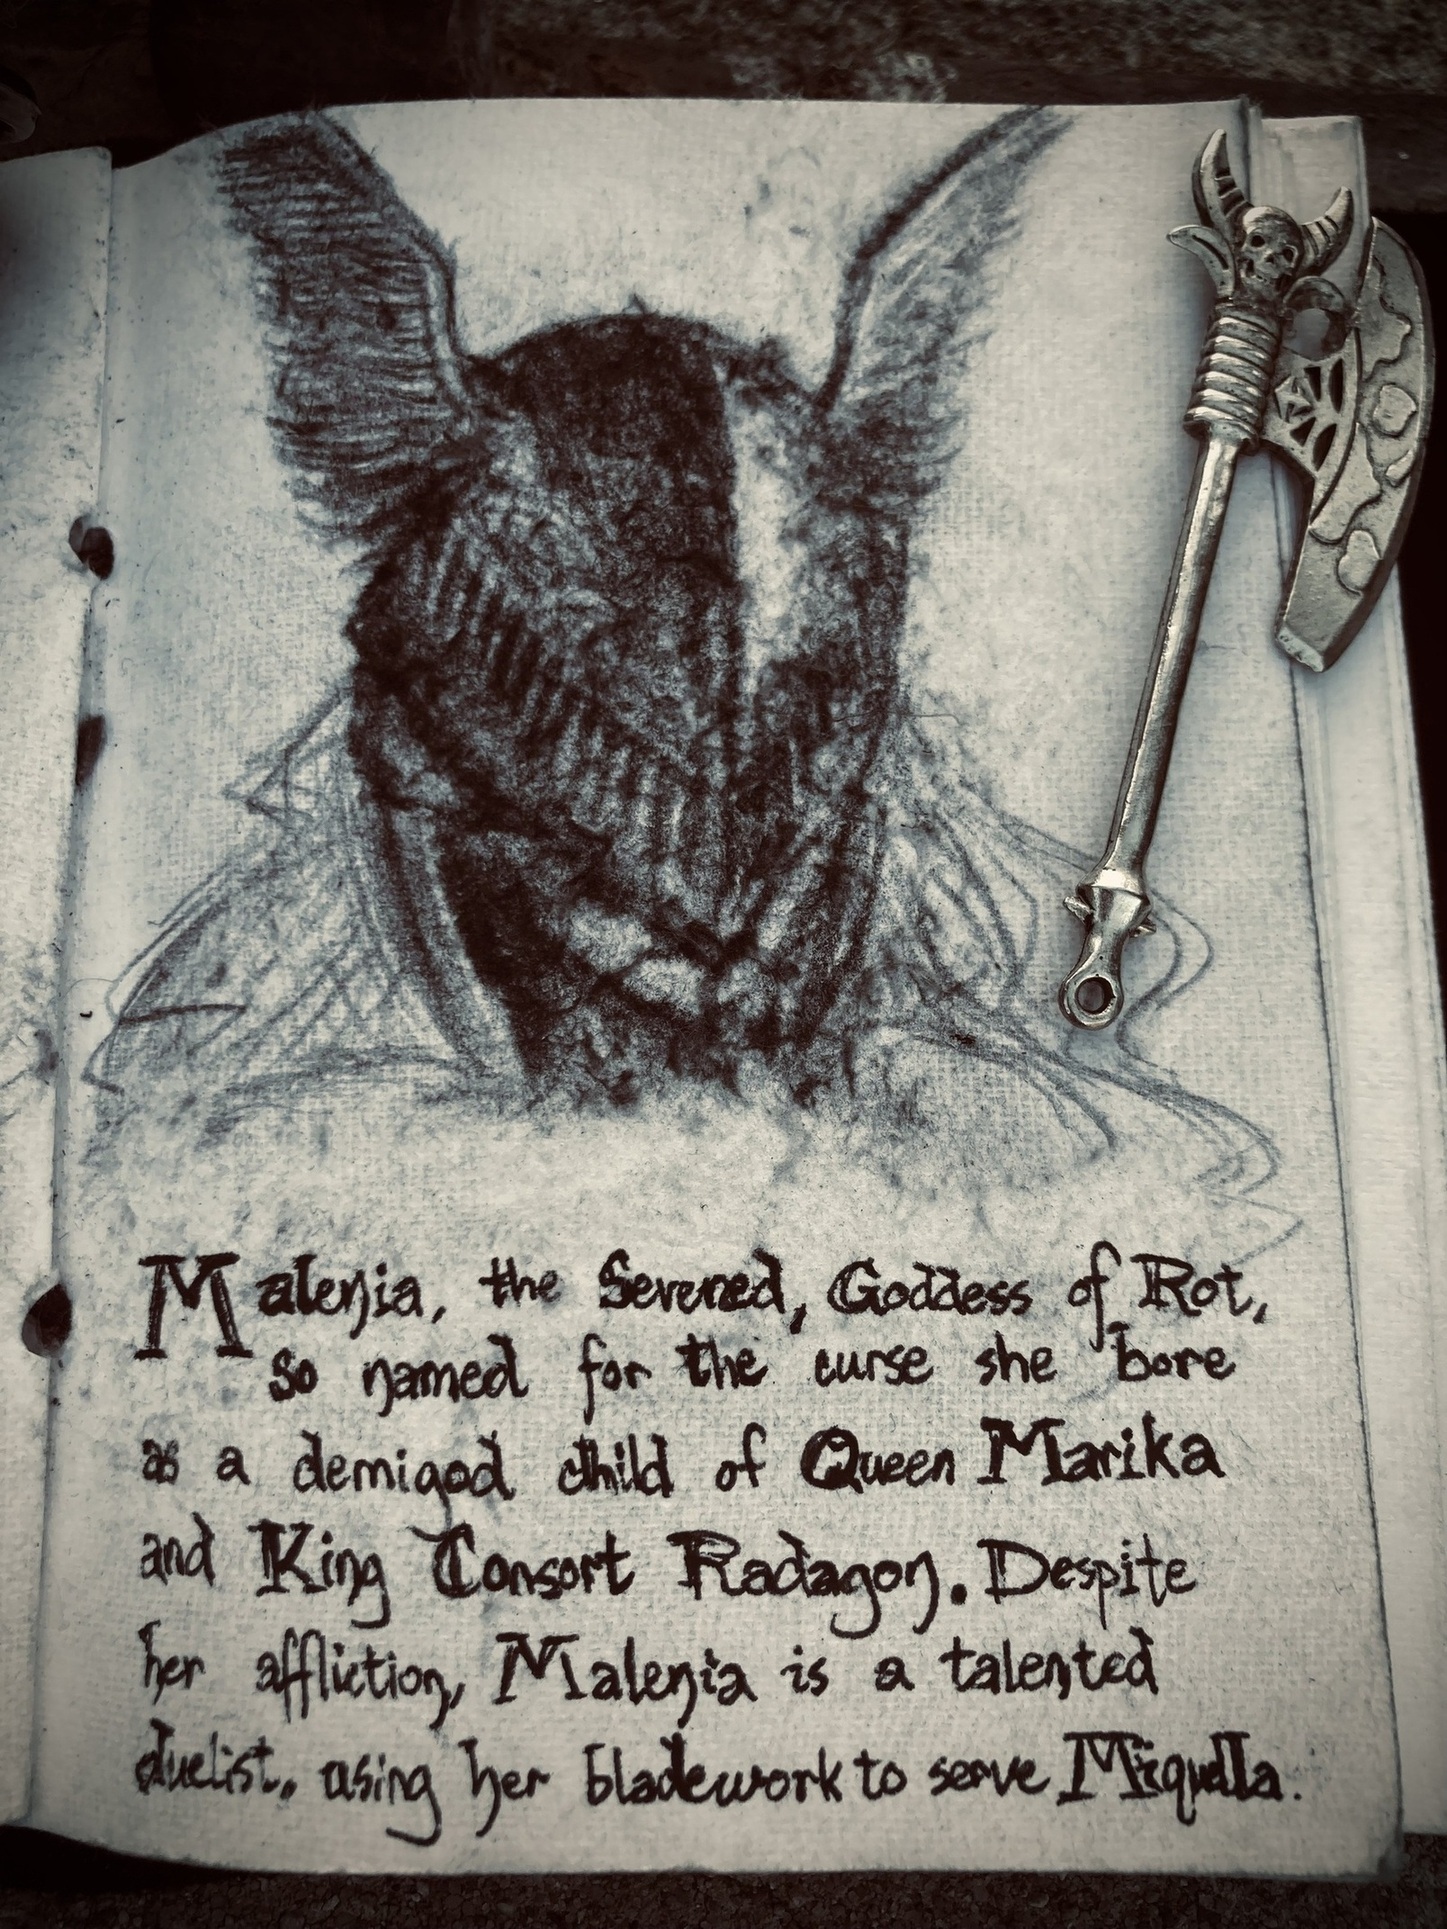 Malenia, the Severed, Goddess of Rot,
so named for the curse she bore
as a demigod child of Queen Marika
and King Consort Radagon. Despite
her affliction, Malenia is a talented
duelist, using her bladework to serve Miquella.